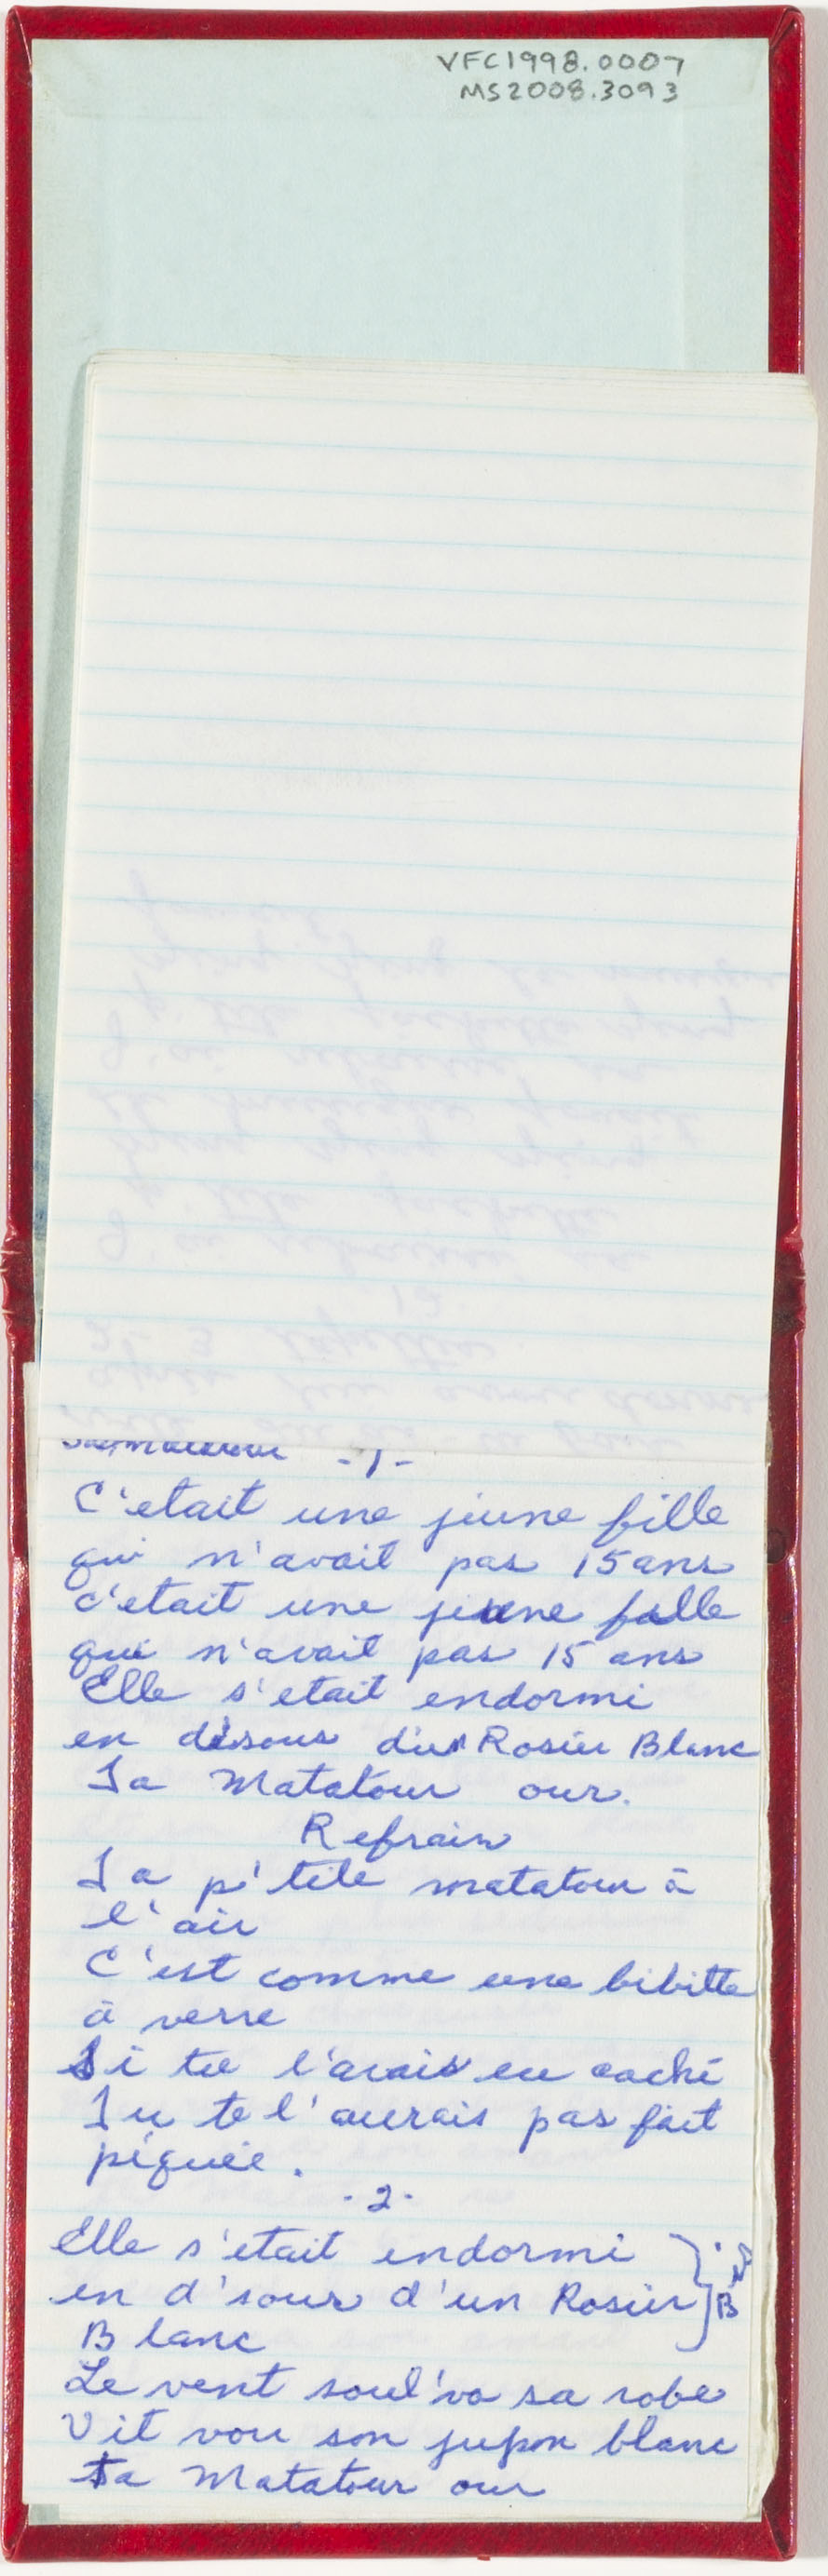 VFC1998.0007
MS2008.3093
-1-
C'etait une jeune fille
qui n'avait pas 15 ans
c'etait une jeune fille
qui n'avait pas 15 ans
Elle s'etait endormi
en desous d'un Rosier Blanc
Ta Matatour our.
Refrain
Ta p'tite matatou à
l'air
C'est comme une bibitte
à verre
Si tu l'avais eu caché
Tu te l'aurais pas fait
piquée.
-2-
Elle s'etait endormi
en d'sour d'un Rosier
Blanc
Le vent soul'va sa robe
Vit voir son jupon blanc
Ta Matatour our